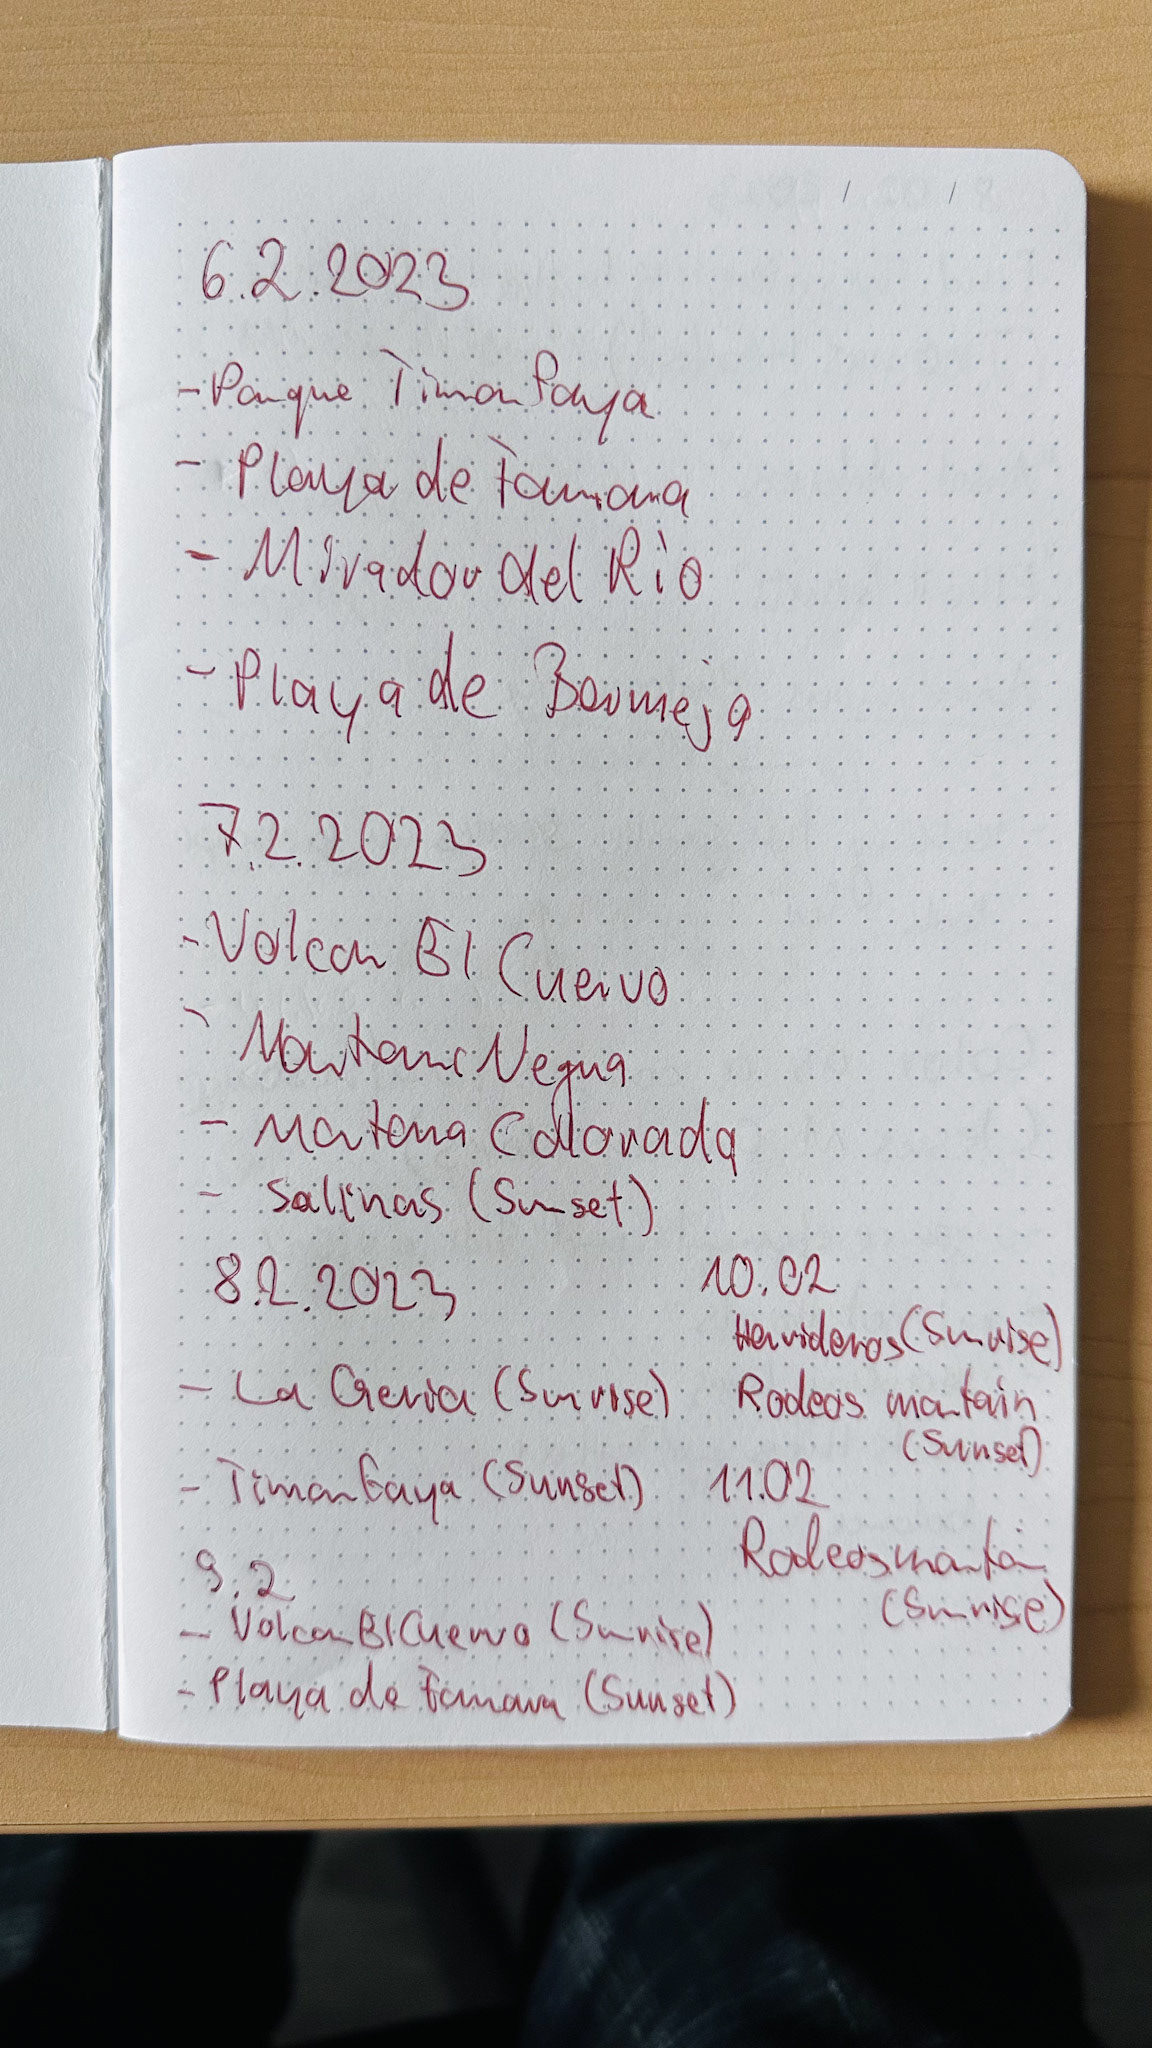 6.2.2023
- Parque Timanfaya
- Playa de Famara
- Mirador del Rio
- Playa de Bermeja
7.2.2023
- Volcan El Cuervo
- Montana Negra
- Montana Colorada
- Salinas (Sunset)
8.2.2023
- La Geria (Sunrise)
- Timanfaya (Sunset)
9.2
- Volcan El Cuervo (Sunrise)
- Playa de Famara (Sunset)
10.02
Hervideros (Sunrise)
Rodeos montain
(Sunset)
11.02
Rodeos montain
(Sunrise)